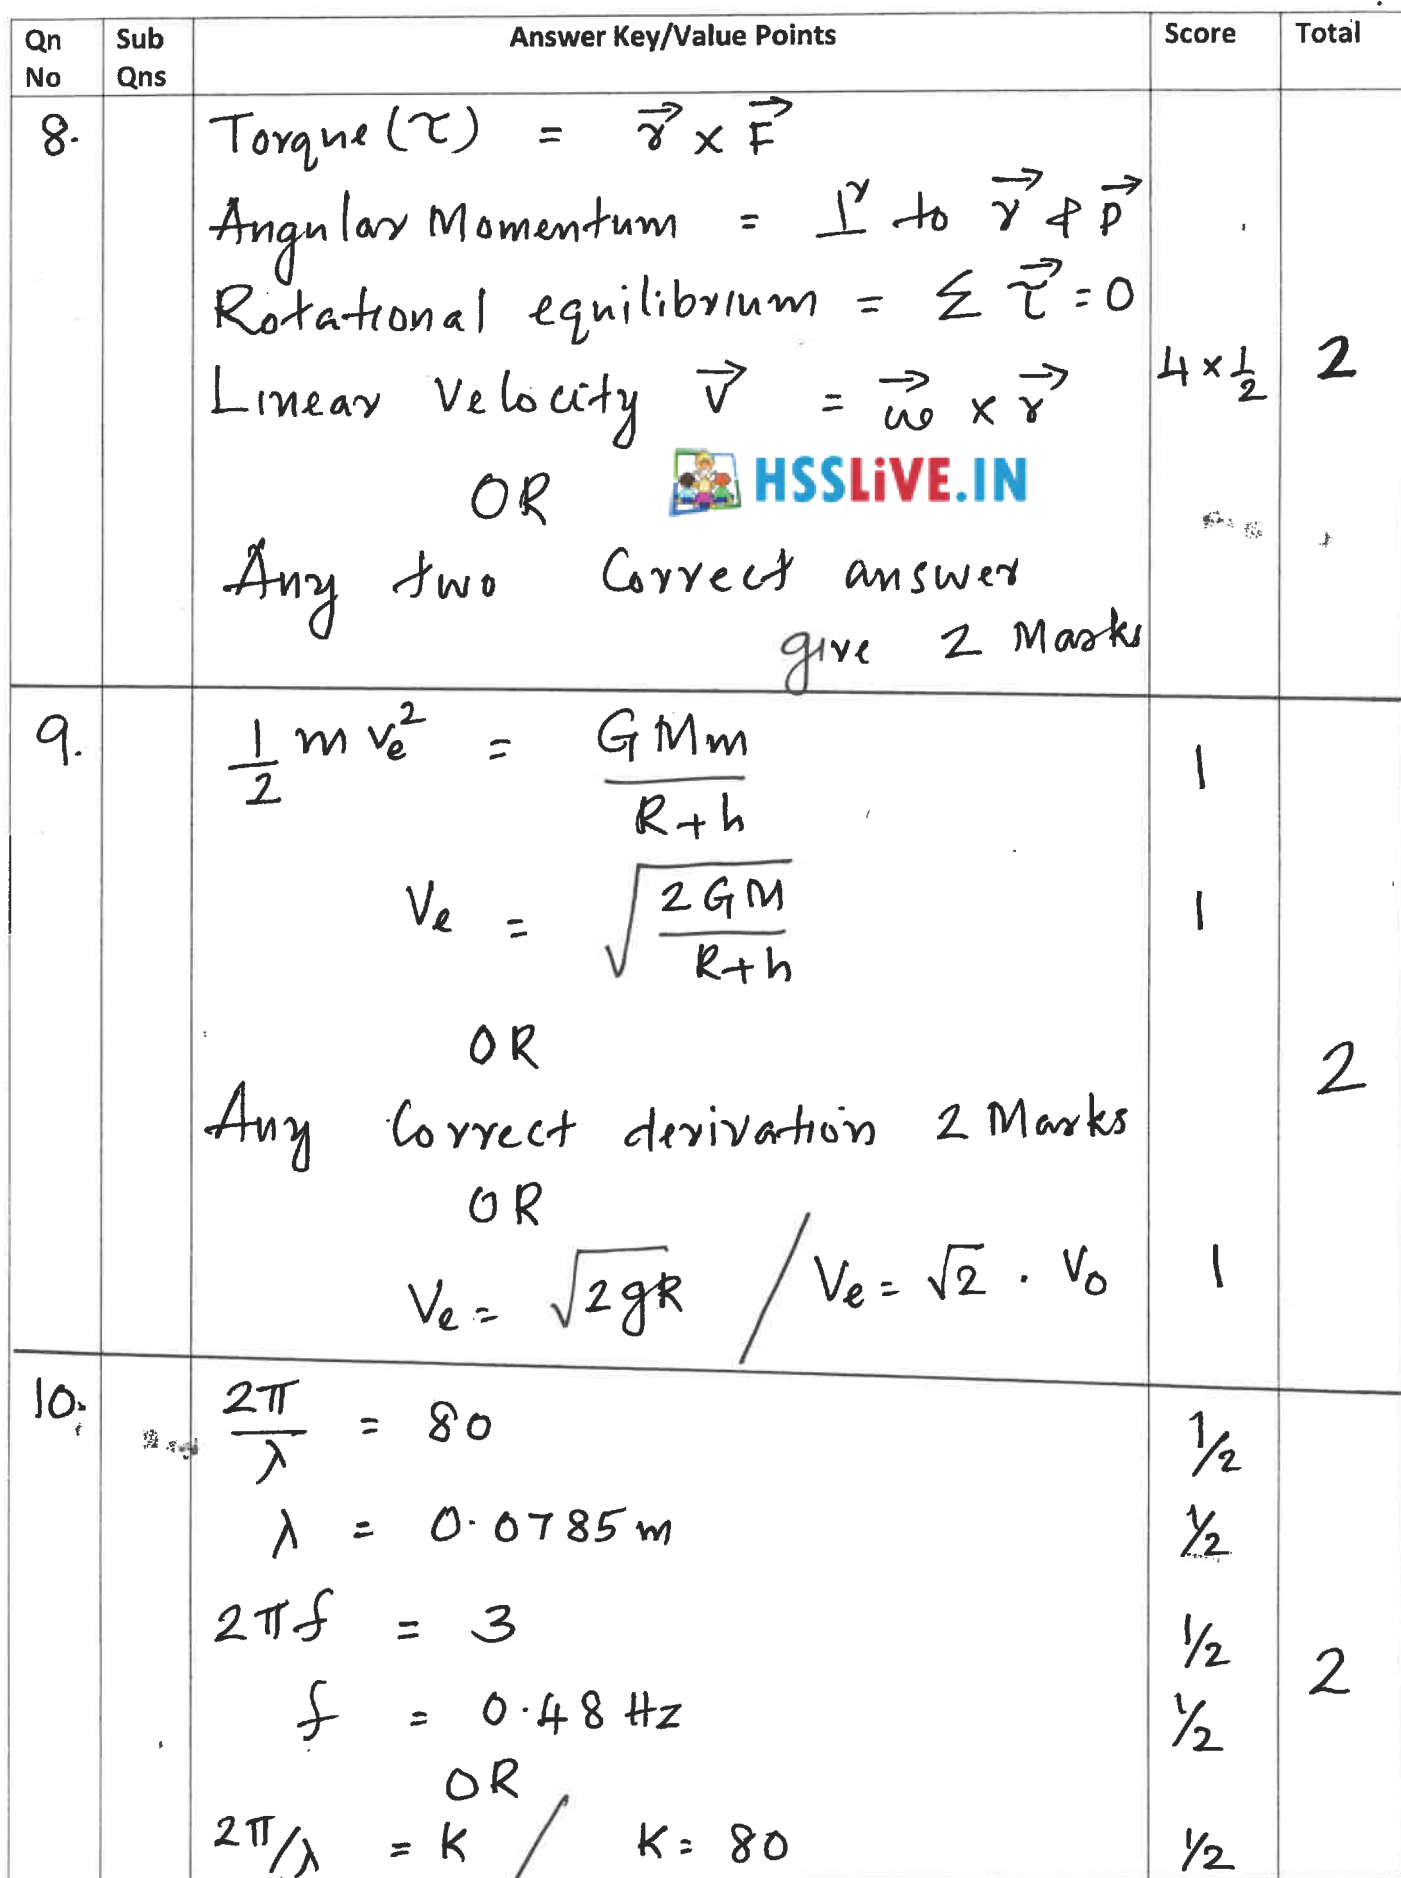 Qn No	Sub Qns	Answer Key/Value Points	Score	Total
8.	Torque (τ) = r⃗ × F⃗
Angular Momentum = ⊥r to r⃗ & p⃗
Rotational equilibrium = Σ τ⃗ = 0
Linear Velocity v⃗ = ω⃗ × r⃗	4 × 1/2	2
OR	HSSLiVE.IN
Any two Correct answer
give 2 Marks
9.	1/2 m vₑ² = GMm/(R+h)	1
Vₑ = √(2GM/(R+h))	1
OR
2
Any Correct derivation 2 Marks
OR
Vₑ = √(2gR) / Vₑ = √2 . V₀	1
10.	2π/λ = 80	1/2
λ = 0.0785 m	1/2
2πf = 3	1/2	2
f = 0.48 Hz	1/2
OR
2π/λ = K / K = 80	1/2